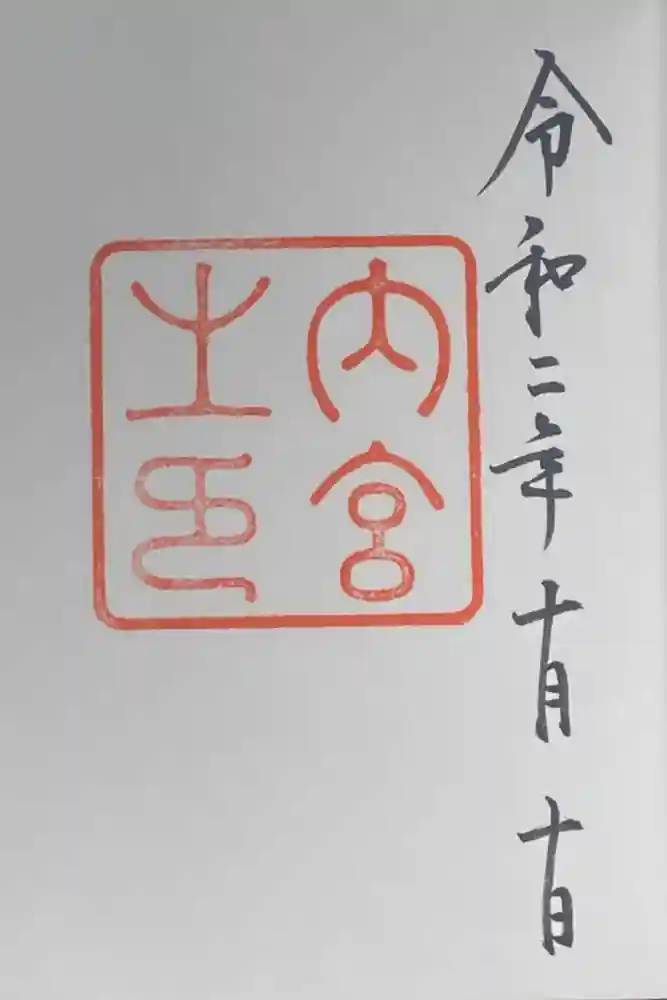 令和二年十月十日
内宮
之印